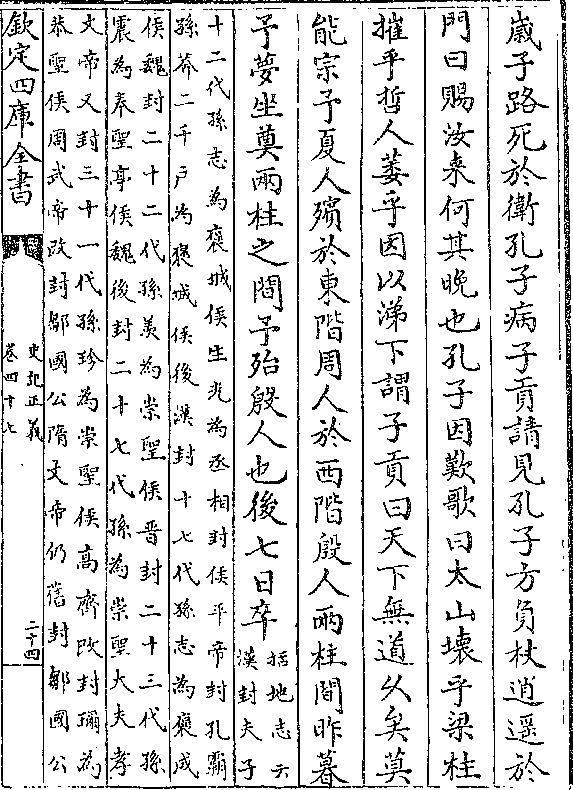 歲子路死於衛孔子病子貢請見孔子方負杖逍遥於
門曰賜汝来何其晚也孔子因歎歌曰太山壊乎梁柱
摧乎哲人萎乎因以涕下謂子貢曰天下無道久矣莫
能宗予夏人殯於東階周人於西階殷人兩柱間昨暮
予夢坐奠兩柱之間予殆殷人也後七日卒
括地志云
漢封夫子
十二代孫志為襃城侯生光為丞相封侯平帝封孔霸
孫莽二千户為襃城侯後漢封十七代孫志為襃成
侯魏封二十二代孫羨為崇聖侯晋封二十三代孫
震為奉聖亭侯魏後封二十七代孫為崇聖大夫孝
文帝又封三十一代孫珍為崇聖侯高齊改封珍為
恭聖侯周武帝改封鄒國公隋文帝仍舊封鄒國公
欽定四庫全書
史記正義
卷四十七
二十四